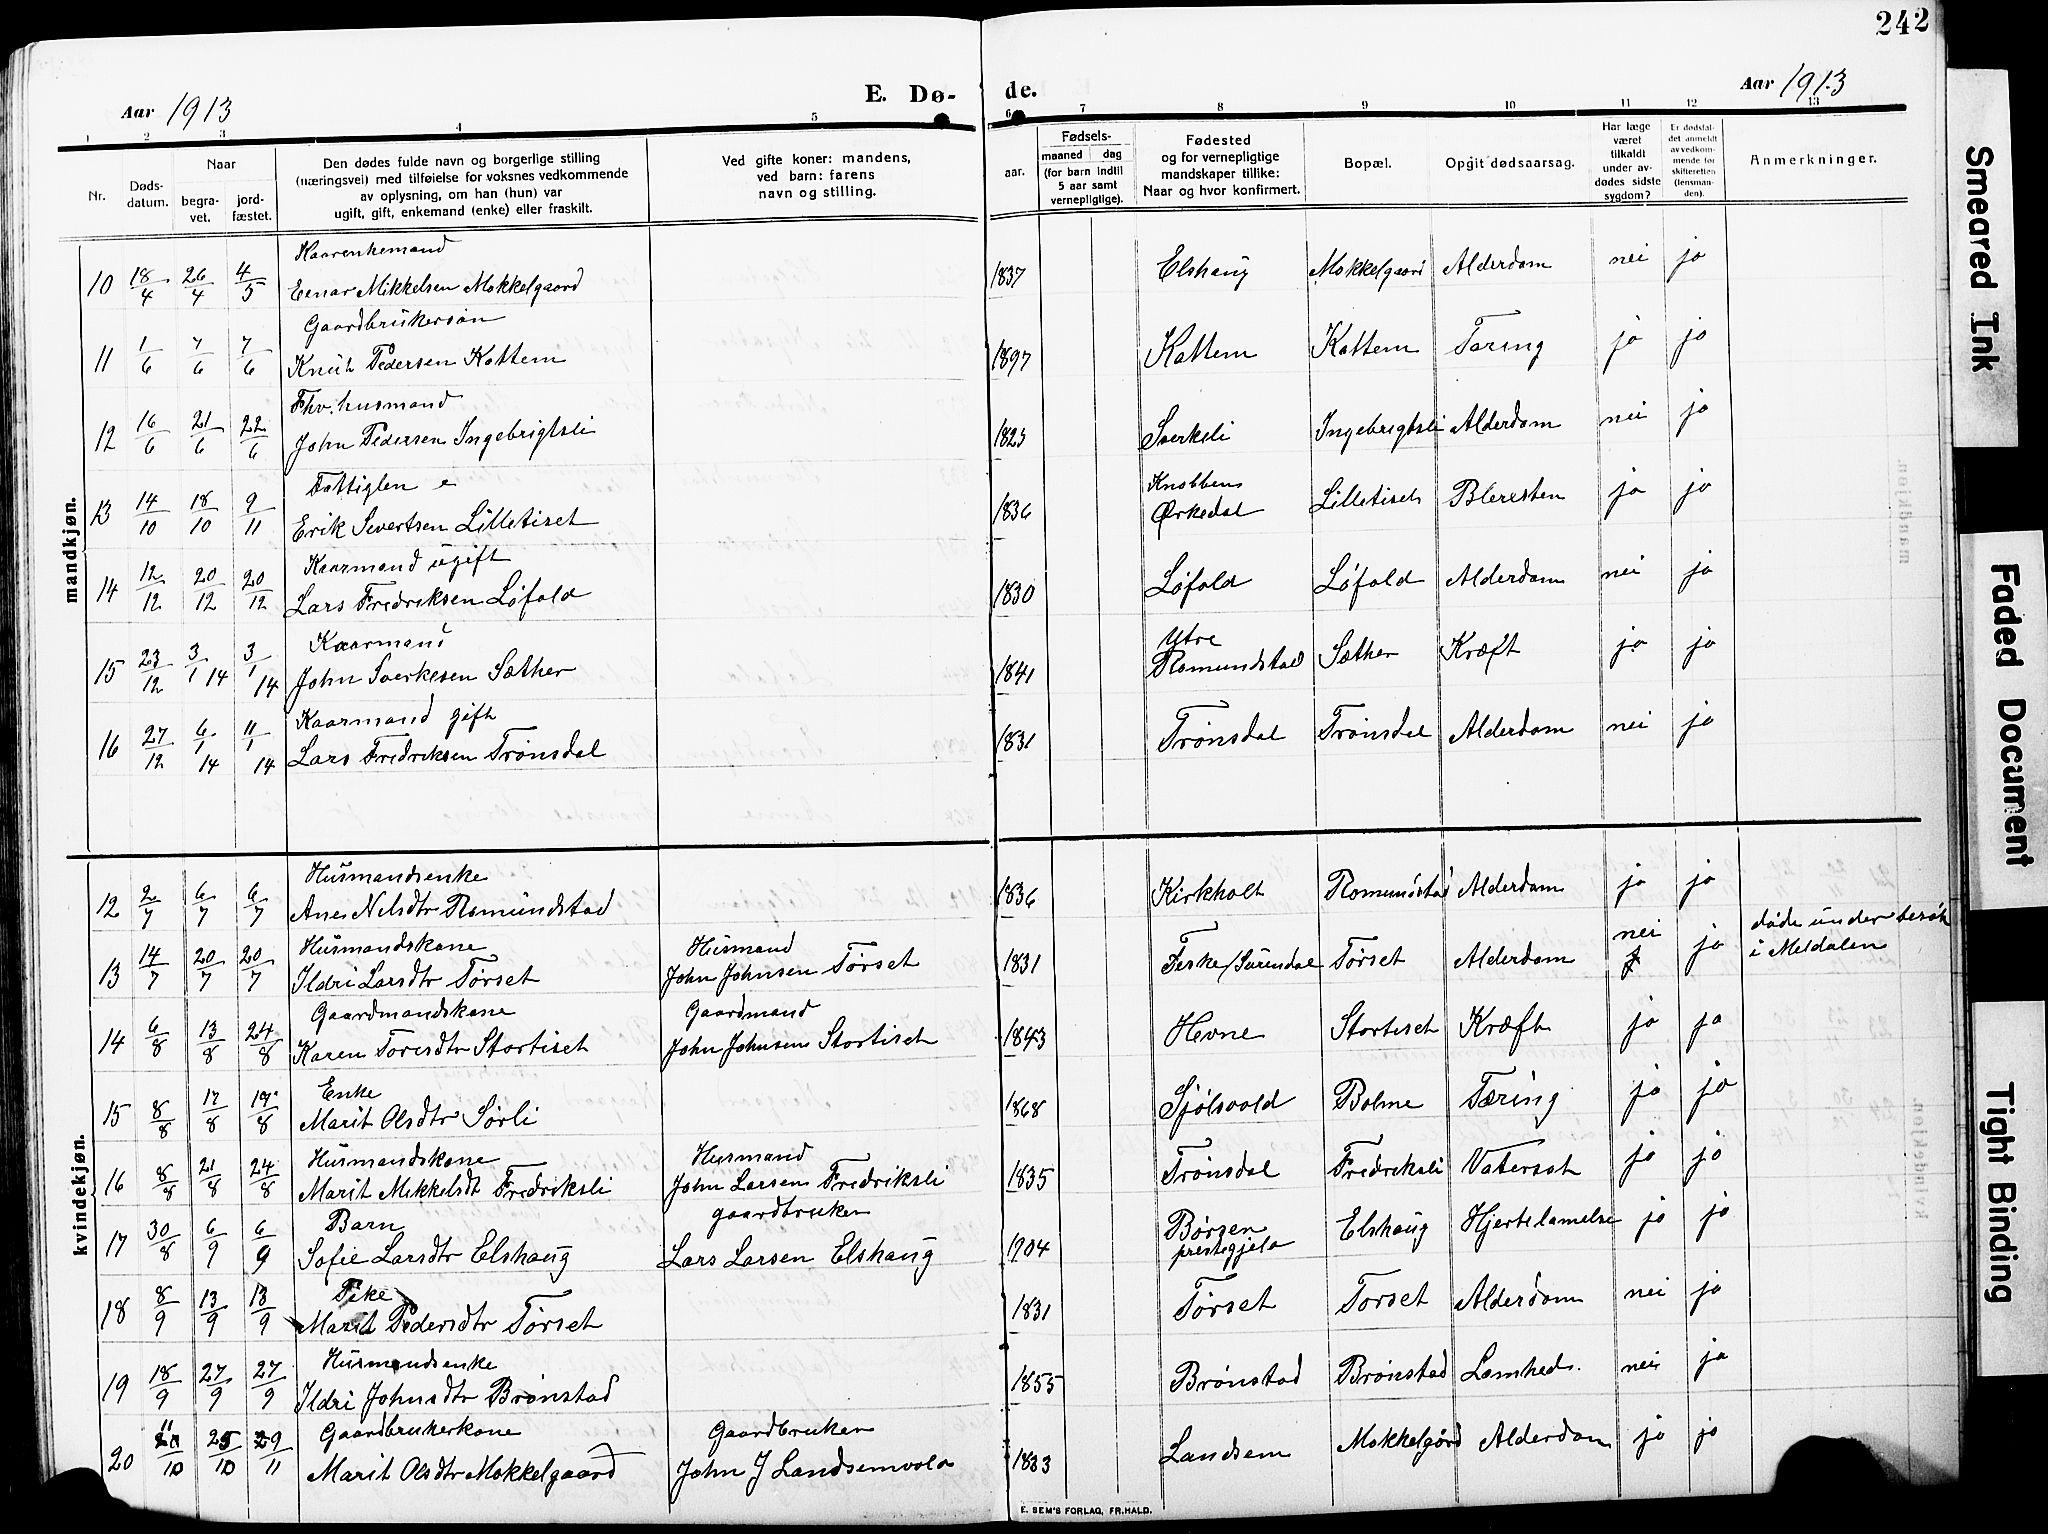 242
Aar 1913
E. Dø-
de.
Aar 1913
1 2 3 4 5 6 7 8 9 10 11 12 13
Nr.
Døds-
datum.
Naar
begra-
vet.
jord-
fæstet.
Den dødes fulde navn og borgerlige stilling
(næringsvei) med tilføielse for voksnes vedkommende
av oplysning, om han (hun) var
ugift, gift, enkemand (enke) eller fraskilt.
Ved gifte koner: mandens,
ved barn: farens
navn og stilling.
Fødsels-
aar.
maaned dag
(for barn indtil
5 aar samt
vernepligtige).
Fødested
og for vernepligtige
mandskaper tillike:
Naar og hvor konfirmert.
Bopæl.
Opgit dødsaarsag.
Har læge
været
tilkaldt
under av-
dødes sidste
sygdom?
Er dødsfal-
det anmeldt
av vedkom-
mende for
skifteretten
(lensman-
den).
Anmerkninger.
mandkjøn.
Kaarenkemand
10 18/4 26/4 4/5 Einar Mikkelsen Mokkelgaard 1837 Elshaug Mokkelgaard Alderdom nei jo
Gaardbrukersøn
11 1/6 7/6 7/6 Knut Pedersen Kattem 1897 Kattem Kattem Tæring jo jo
Fhv. husmand
12 16/6 21/6 22/6 John Pedersen Ingebrigtsli 1825 Sverksli Ingebrigtsli Alderdom nei jo
Fattiglem e
Knobben
13 14/10 18/10 9/11 Erik Sivertsen Lilletiset 1836 Ørkedal Lilletiset Blæresten jo jo
Kaarmand ugift
14 12/12 20/12 20/12 Lars Fredriksen Løfald 1830 Løfald Løfald Alderdom nei jo
Kaarmand
Ytre
15 23/12 3/1 14 3/1 14 John Sverkesen Sæther 1841 Romundstad Sæther Kræft jo jo
Kaarmand gift
16 27/12 6/1 14 11/1 14 Lars Fredriksen Trønsdal 1831 Trønsdal Trønsdal Alderdom nei jo
kvindekjøn.
Husmandsenke
12 2/7 6/7 6/7 Ane Nilsdtr Romundstad 1836 Kirkholt Romundstad Alderdom jo jo
Husmandskone Husmand nei døde under besøk
13 14/7 20/7 20/7 Ildri Larsdtr Tørset John Johnsen Tørset 1831 Feske/Surendal Tørset Alderdom jo i Meldalen
Gaardmandskone Gaardmand
14 6/8 13/8 24/8 Karen Toresdtr Stortiset John Johnsen Stortiset 1843 Hevne Stortiset Kræft jo jo
Enke
15 8/8 17/8 17/8 Marit Olsdtr Sørli 1868 Sjølsvold Bolme Tæring jo jo
Husmandskone Husmand
16 8/8 21/8 24/8 Marit Mikkelsdt Fredriksli John Larsen Fredriksli 1835 Trønsdal Fredriksli Vatersot jo jo
Barn gaardbruker
17 30/8 6/9 6/9 Sofie Larsdtr Elshaug Lars Larsen Elshaug 1904 Børsen Elshaug Hjertelamelse jo jo
prestegjeld
Pike
18 8/9 13/9 13/9 Marit Pedersdtr Tørset 1831 Tørset Tørset Alderdom nei jo
Husmandsenke
19 18/9 27/9 27/9 Ildri Johnsdtr Brønstad 1855 Brønstad Brønstad Lamhed. nei jo
Gaardbrukerkone Gaardbruker
20 11/10 25/10 29/11 Marit Olsdtr Mokkelgaard John J Landsemvold 1833 Landsem Mokkelgård Alderdom jo jo
E. SEM'S FORLAG, FR.HALD.
Smeared Ink
Faded Document
Tight Binding